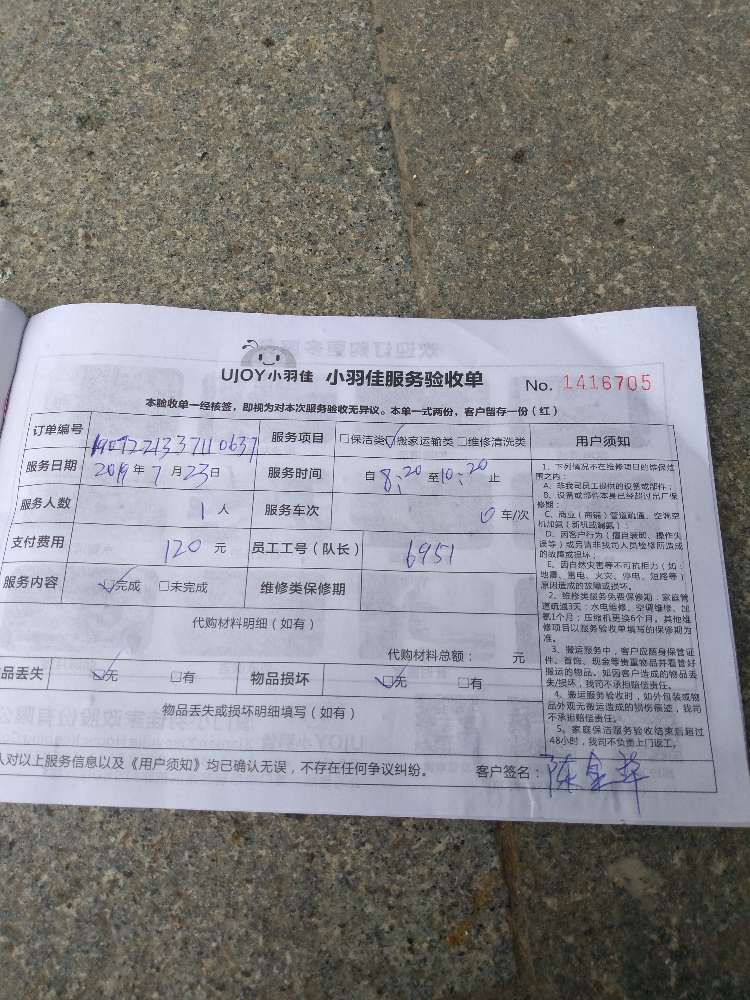 UJOY小羽佳 小羽佳服务验收单 No. 1416705
本验收单一经核签,即视为对本次服务验收无异议。本单一式两份,客户留存一份(红)
订单编号 服务项目 □保洁类 ☑搬家运输类 □维修清洗类 用户须知
服务日期 2019年7月23日 服务时间 自8:20至10:20止
服务人数 1人 服务车次 0车/次
支付费用 120元 员工工号(队长) 6951
服务内容 ☑完成 □未完成 维修类保修期
代购材料明细(如有)
代购材料总额: 元
品丢失 ☑无 □有 物品损坏 ☑无 □有
物品丢失或损坏明细填写(如有)
人对以上服务信息以及《用户须知》均已确认无误,不存在任何争议纠纷。 客户签名:
1、下列情况不在维修项目的维保范
围之内:
A、非我司员工提供的设备或部件;
B、设备或部件本身已经超过出厂保
修期;
C、商业(商铺)管道疏通、空调空
机加氨(新机或漏氨);
D、因客户行为(擅自装卸、操作失
误等)或另请非我司人员检修所造成
的故障或损坏;
E、因自然灾害等不可抗拒力(如:
地震、雷电、火灾、停电、短路等)
原因造成的故障或损坏。
2、维修类服务免费保修期:家庭管
道疏通3天;水电维修、空调维修、加
氨1个月;压缩机更换6个月。其他维
修项目以服务验收单填写的保修期为
准。
3、搬运服务中,客户应随身保管证
件、首饰、现金等贵重物品并看管好
搬运的物品。如因客户造成的物品丢
失/损坏,我司不承担赔偿责任。
4、搬运服务验收时,如外包装或物
品外观无搬运造成的损伤痕迹,我司
不承担赔偿责任。
5、家庭保洁服务验收结束后超过
48小时,我司不负责上门返工。